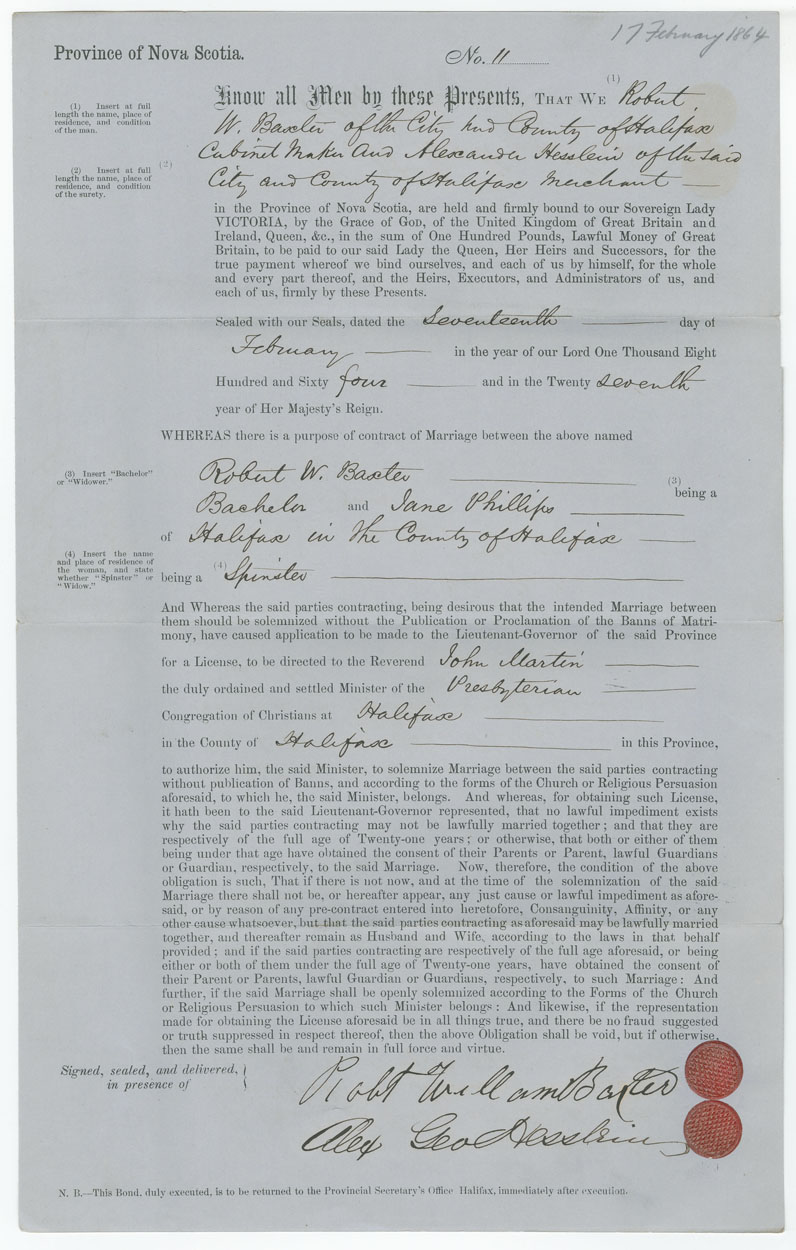 17 February 1864
Province of Nova Scotia.
No. 11
(1)
Know all Men by these Presents, THAT WE Robert
(1) Insert at full
length the name, place of
residence, and condition
of the man.
W. Baxter of the City and County of Halifax
Cabinet Maker And Alexander Hesslein of the said
(2) Insert at full
length the name, place of
residence, and condition
of the surety.
(2)
City and County of Halifax Merchant —
in the Province of Nova Scotia, are held and firmly bound to our Sovereign Lady
VICTORIA, by the Grace of GOD, of the United Kingdom of Great Britain and
Ireland, Queen, &c., in the sum of One Hundred Pounds, Lawful Money of Great
Britain, to be paid to our said Lady the Queen, Her Heirs and Successors, for the
true payment whereof we bind ourselves, and each of us by himself, for the whole
and every part thereof, and the Heirs, Executors, and Administrators of us, and
each of us, firmly by these Presents.
Sealed with our Seals, dated the Seventeenth — day of
February — in the year of our Lord One Thousand Eight
Hundred and Sixty four — and in the Twenty seventh
year of Her Majesty's Reign.
WHEREAS there is a purpose of contract of Marriage between the above named
(3) Insert "Bachelor"
or "Widower."
Robert W. Baxter — (3)
being a
Bachelor and Jane Phillips —
of Halifax in the County of Halifax —
(4) Insert the name
and place of residence of
the woman, and state
whether "Spinster" or
"Widow."
being a (4) Spinster —
And Whereas the said parties contracting, being desirous that the intended Marriage between
them should be solemnized without the Publication or Proclamation of the Banns of Matri-
mony, have caused application to be made to the Lieutenant-Governor of the said Province
for a License, to be directed to the Reverend John Martin —
the duly ordained and settled Minister of the Presbyterian —
Congregation of Christians at Halifax —
in the County of Halifax — in this Province,
to authorize him, the said Minister, to solemnize Marriage between the said parties contracting
without publication of Banns, and according to the forms of the Church or Religious Persuasion
aforesaid, to which he, the said Minister, belongs. And whereas, for obtaining such License,
it hath been to the said Lieutenant-Governor represented, that no lawful impediment exists
why the said parties contracting may not be lawfully married together; and that they are
respectively of the full age of Twenty-one years; or otherwise, that both or either of them
being under that age have obtained the consent of their Parents or Parent, lawful Guardians
or Guardian, respectively, to the said Marriage. Now, therefore, the condition of the above
obligation is such, That if there is not now, and at the time of the solemnization of the said
Marriage there shall not be, or hereafter appear, any just cause or lawful impediment as afore-
said, or by reason of any pre-contract entered into heretofore, Consanguinity, Affinity, or any
other cause whatsoever, but that the said parties contracting as aforesaid may be lawfully married
together, and thereafter remain as Husband and Wife, according to the laws in that behalf
provided; and if the said parties contracting are respectively of the full age aforesaid, or being
either or both of them under the full age of Twenty-one years, have obtained the consent of
their Parent or Parents, lawful Guardian or Guardians, respectively, to such Marriage: And
further, if the said Marriage shall be openly solemnized according to the Forms of the Church
or Religious Persuasion to which such Minister belongs: And likewise, if the representation
made for obtaining the License aforesaid be in all things true, and there be no fraud suggested
or truth suppressed in respect thereof, then the above Obligation shall be void, but if otherwise,
then the same shall be and remain in full force and virtue.
Signed, sealed, and delivered,
in presence of
Robt William Baxter
Alex Geo Hesslein
N. B.—This Bond, duly executed, is to be returned to the Provincial Secretary's Office Halifax, immediately after execution.